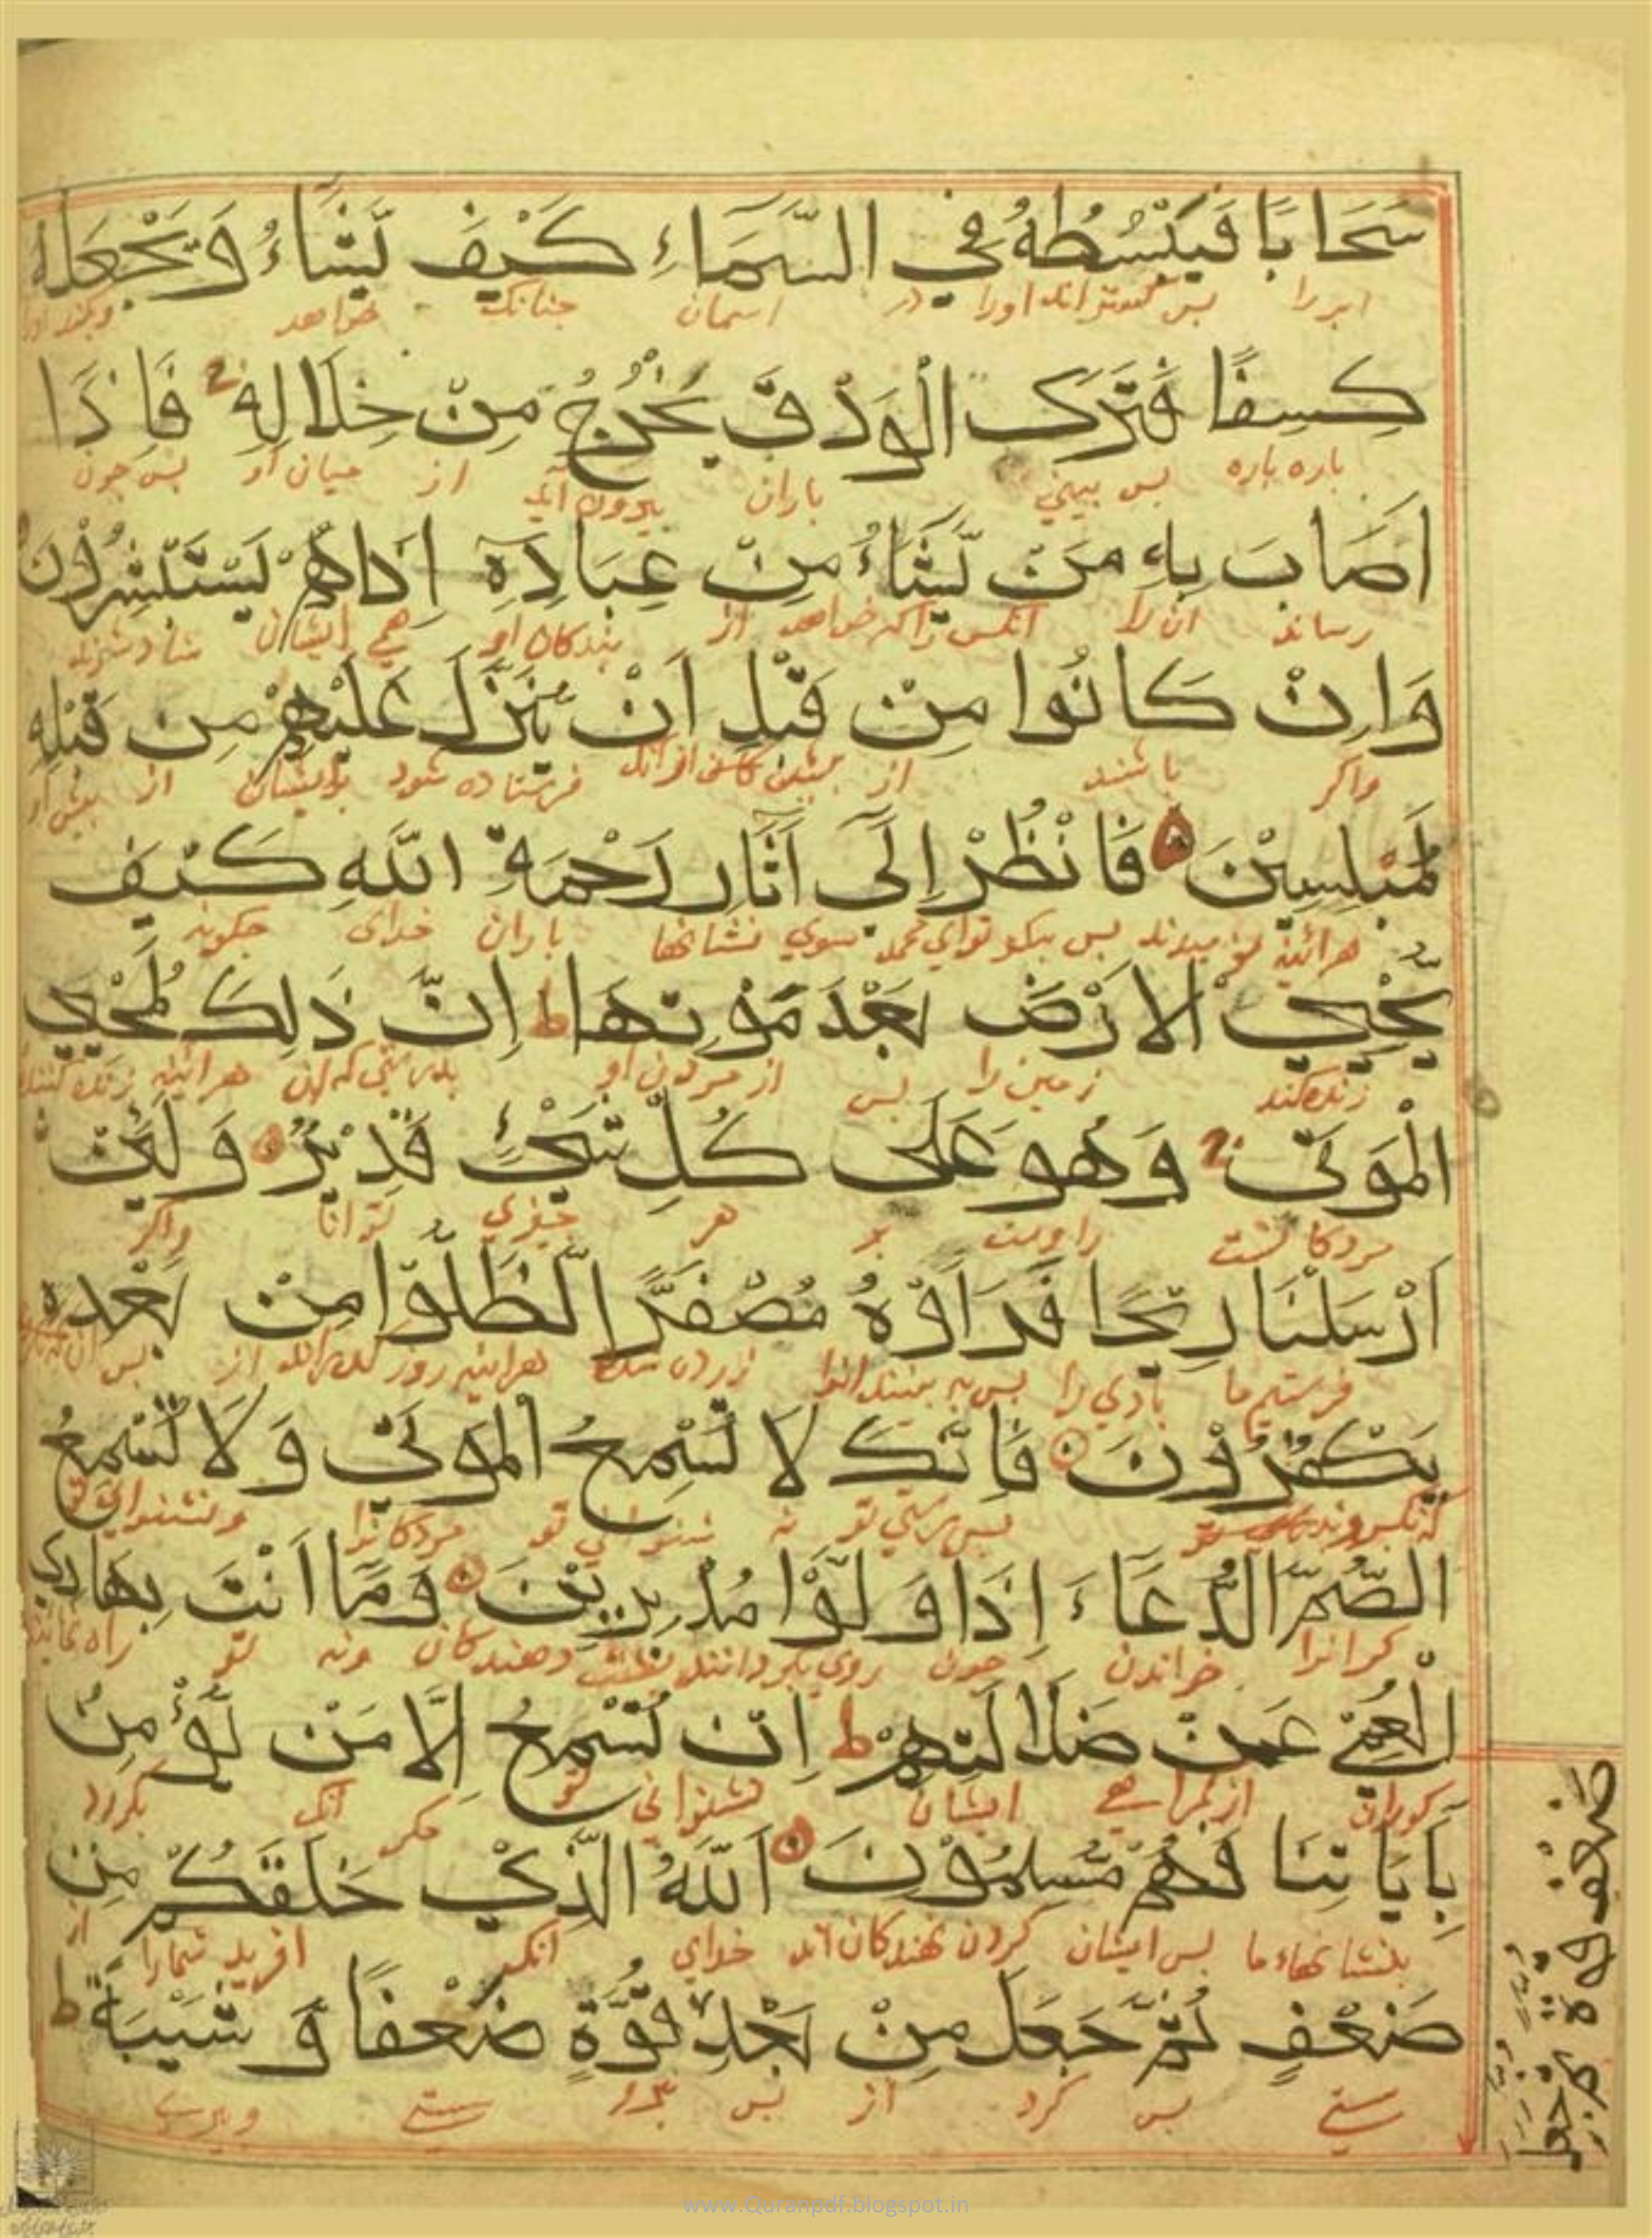 سَحَابًا فَيَبْسُطُهُ فِي السَّمَاءِ كَيْفَ يَشَاءُ وَيَجْعَلُهُ
ابر را پس اورا در اسمان چنانک خواهد
كِسَفًا فَتَرَى الْوَدْقَ يَخْرُجُ مِنْ خِلَالِهِ فَاِذَا
باره باره پس بیني باران بیرون آید از میان او پس چون
اَصَابَ بِهِ مَنْ يَّشَاءُ مِنْ عِبَادِهِ اِذَاهُمْ يَسْتَبْشِرُوْنَ
رساند ان را انکس را که خواهد از بندکان او همي ایشان شاد شوند
وَاِنْ كَانُوا مِنْ قَبْلِ اَنْ يُنَزَّلَ عَلَيْهِمْ مِنْ قَبْلِهِ
واکر باشند از فرستاده شود بر ایشان از پیش او
لَمُبْلِسِيْنَ فَانْظُرْ اِلَى آثَارِ رَحْمَةِ اللّٰهِ كَيْفَ
هرائینه پس بنکر تو اي محمد سوي نشانها باران خدای چکونه
يُحْيِي الْاَرْضَ بَعْدَ مَوْتِهَا ط اِنَّ ذَلِكَ لَمُحْيِي
زنده کند زمین را پس از مردن او بدرستي که ان هرائینه زنده کننده
الْمَوْتَى وَهُوَ عَلَى كُلِّ شَيْءٍ قَدِيْرٌ وَلَئِنْ
مردکانست را بر هر چیزي توانا واکر
اَرْسَلْنَا رِيْحًا فَرَاَوْهُ مُصْفَرًّا لَّظَلُّوْا مِنْ بَعْدِهِ
فرستیم ما بادي را پس به بینند انرا زرد شده هرائینه از پس
يَكْفُرُوْنَ فَاِنَّكَ لَا تُسْمِعُ الْمَوْتَى وَلَا تُسْمِعُ
پس بدرستي تو نه شنواني تو مردکانرا ونشنواني تو
الصُّمَّ الدُّعَاءَ اِذَا وَلَّوْا مُدْبِرِيْنَ وَمَا اَنْتَ بِهَادِي
کرانرا خواندن چون روي بکردانند دهندکان ونه تو راه نماینده
الْعُمْيِ عَنْ ضَلَالَتِهِمْ ط اِنْ تُسْمِعُ اِلَّا مَنْ يُؤْمِنُ
کوران از کمراهي ایشان نشنواني تو مکر انک بکرود
بِاٰيَاتِنَا فَهُمْ مُسْلِمُوْنَ اَللّٰهُ الَّذِيْ خَلَقَكُمْ مِنْ
بنشانهاء ما پس ایشان کردن نهندکان اند خداي انکه افرید شمارا از
ضَعْفٍ ثُمَّ جَعَلَ مِنْ بَعْدِ قُوَّةٍ ضَعْفًا وَّ شَيْبَةً ط
سستي پس کرد از پس سستي وپیري
ضَعْفٍ قُوَّةً ثُمَّ جَعَلَ
www.Quranpdf.blogspot.in